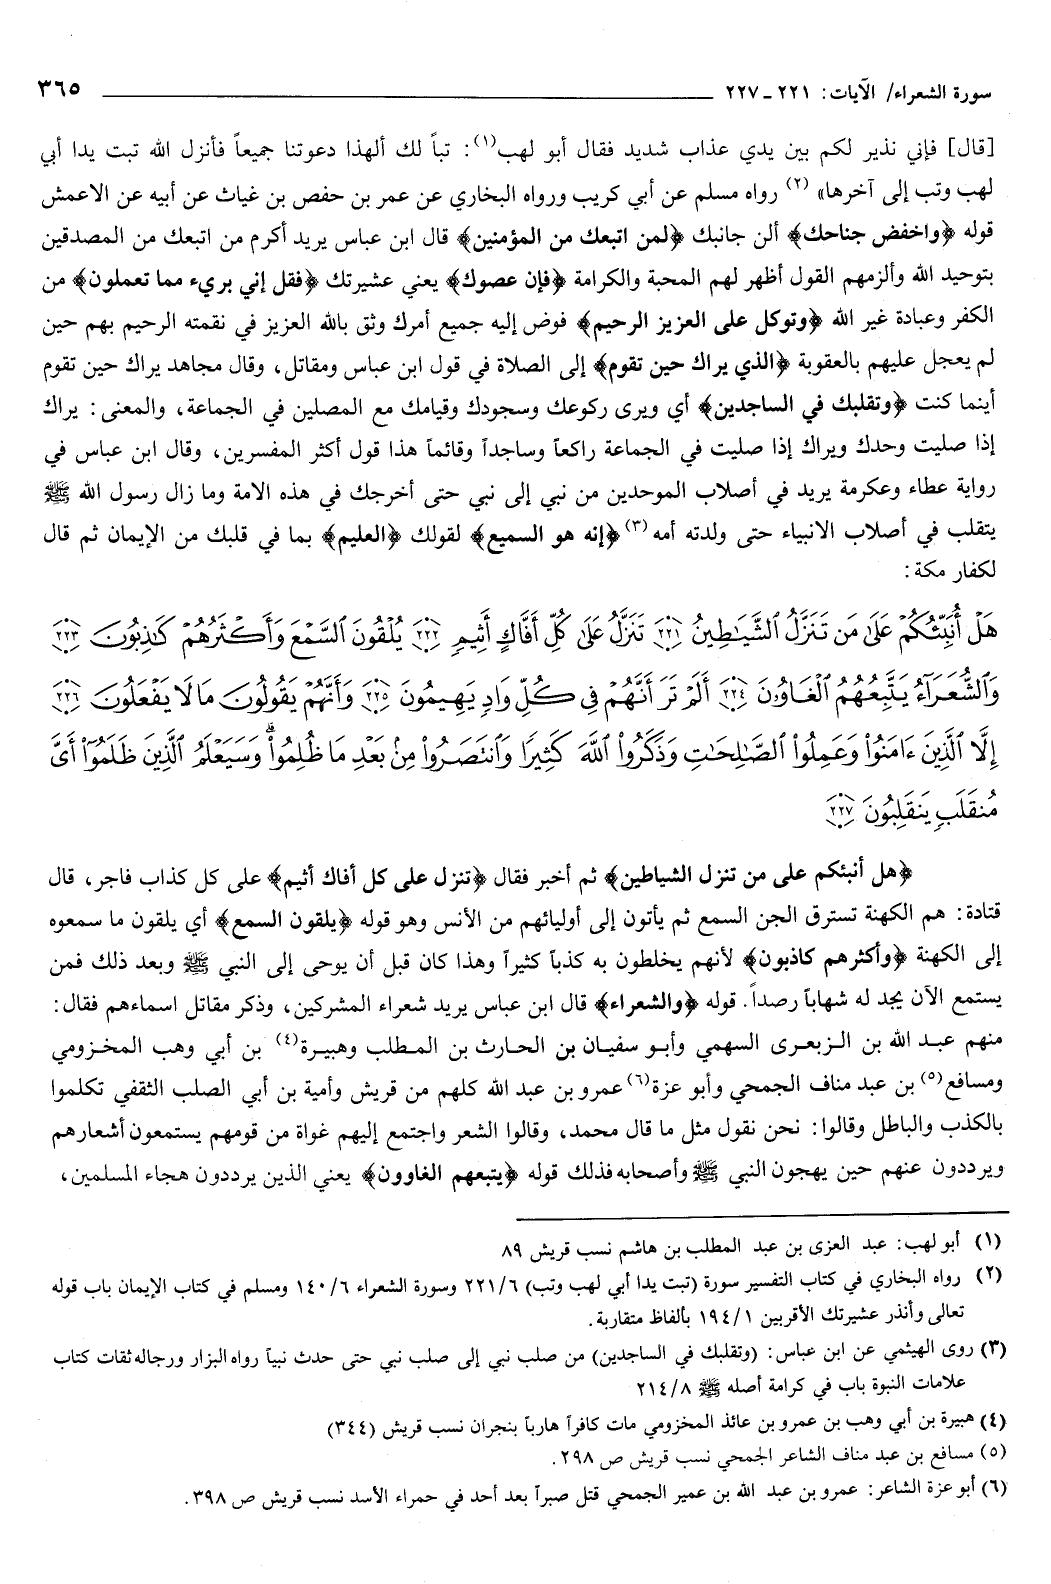 سورة الشعراء/ الآيات: ٢٢١ - ٢٢٧ ٣٦٥
[قال] فإني نذير لكم بين يدي عذاب شديد فقال أبو لهب(١): تباً لك ألهذا دعوتنا جميعاً فأنزل الله تبت يدا أبي
لهب وتب إلى آخرها» (٢) رواه مسلم عن أبي كريب ورواه البخاري عن عمر بن حفص بن غياث عن أبيه عن الاعمش
قوله ﴿واخفض جناحك﴾ ألن جانبك ﴿لمن اتبعك من المؤمنين﴾ قال ابن عباس يريد أكرم من اتبعك من المصدقين
بتوحيد الله وألزمهم القول أظهر لهم المحبة والكرامة ﴿فإن عصوك﴾ يعني عشيرتك ﴿فقل إني بريء مما تعملون﴾ من
الكفر وعبادة غير الله ﴿وتوكل على العزيز الرحيم﴾ فوض إليه جميع أمرك وثق بالله العزيز في نقمته الرحيم بهم حين
لم يعجل عليهم بالعقوبة ﴿الذي يراك حين تقوم﴾ إلى الصلاة في قول ابن عباس ومقاتل، وقال مجاهد يراك حين تقوم
أينما كنت ﴿وتقلبك في الساجدين﴾ أي ويرى ركوعك وسجودك وقيامك مع المصلين في الجماعة، والمعنى: يراك
إذا صليت وحدك ويراك إذا صليت في الجماعة راكعاً وساجداً وقائماً هذا قول أكثر المفسرين، وقال ابن عباس في
رواية عطاء وعكرمة يريد في أصلاب الموحدين من نبي إلى نبي حتى أخرجك في هذه الامة وما زال رسول الله ﷺ
يتقلب في أصلاب الانبياء حتى ولدته أمه (٣) ﴿إنه هو السميع﴾ لقولك ﴿العليم﴾ بما في قلبك من الإيمان ثم قال
لكفار مكة:
هَلْ أُنَبِّئُكُمْ عَلَىٰ مَن تَنَزَّلُ ٱلشَّيَـٰطِينُ ﴿٢٢١﴾ تَنَزَّلُ عَلَىٰ كُلِّ أَفَّاكٍ أَثِيمٍ ﴿٢٢٢﴾ يُلْقُونَ ٱلسَّمْعَ وَأَكْثَرُهُمْ كَـٰذِبُونَ ﴿٢٢٣﴾
وَٱلشُّعَرَآءُ يَتَّبِعُهُمُ ٱلْغَاوُۥنَ ﴿٢٢٤﴾ أَلَمْ تَرَ أَنَّهُمْ فِى كُلِّ وَادٍ يَهِيمُونَ ﴿٢٢٥﴾ وَأَنَّهُمْ يَقُولُونَ مَا لَا يَفْعَلُونَ ﴿٢٢٦﴾
إِلَّا ٱلَّذِينَ ءَامَنُوا۟ وَعَمِلُوا۟ ٱلصَّـٰلِحَـٰتِ وَذَكَرُوا۟ ٱللَّهَ كَثِيرًا وَٱنتَصَرُوا۟ مِنۢ بَعْدِ مَا ظُلِمُوا۟ ۗ وَسَيَعْلَمُ ٱلَّذِينَ ظَلَمُوٓا۟ أَىَّ
مُنقَلَبٍ يَنقَلِبُونَ ﴿٢٢٧﴾
﴿هل أنبئكم على من تنزل الشياطين﴾ ثم أخبر فقال ﴿تنزل على كل أفاك أثيم﴾ على كل كذاب فاجر، قال
قتادة: هم الكهنة تسترق الجن السمع ثم يأتون إلى أوليائهم من الأنس وهو قوله ﴿يلقون السمع﴾ أي يلقون ما سمعوه
إلى الكهنة ﴿وأكثرهم كاذبون﴾ لأنهم يخلطون به كذباً كثيراً وهذا كان قبل أن يوحى إلى النبي ﷺ وبعد ذلك فمن
يستمع الآن يجد له شهاباً رصداً. قوله ﴿والشعراء﴾ قال ابن عباس يريد شعراء المشركين، وذكر مقاتل اسماءهم فقال:
منهم عبد الله بن الزبعرى السهمي وأبو سفيان بن الحارث بن المطلب وهبيرة(٤) بن أبي وهب المخزومي
ومسافع(٥) بن عبد مناف الجمحي وأبو عزة(٦) عمرو بن عبد الله كلهم من قريش وأمية بن أبي الصلب الثقفي تكلموا
بالكذب والباطل وقالوا: نحن نقول مثل ما قال محمد، وقالوا الشعر واجتمع إليهم غواة من قومهم يستمعون أشعارهم
ويرددون عنهم حين يهجون النبي ﷺ وأصحابه فذلك قوله ﴿يتبعهم الغاوون﴾ يعني الذين يرددون هجاء المسلمين،
(١) أبو لهب: عبد العزى بن عبد المطلب بن هاشم نسب قريش ٨٩
(٢) رواه البخاري في كتاب التفسير سورة (تبت يدا أبي لهب وتب) ٢٢١/٦ وسورة الشعراء ١٤٠/٦ ومسلم في كتاب الإيمان باب قوله
تعالى وأنذر عشيرتك الأقربين ١٩٤/١ بألفاظ متقاربة.
(٣) روى الهيثمي عن ابن عباس: (وتقلبك في الساجدين) من صلب نبي إلى صلب نبي حتى حدث نبياً رواه البزار ورجاله ثقات كتاب
علامات النبوة باب في كرامة أصله ﷺ ٢١٤/٨
(٤) هبيرة بن أبي وهب بن عمرو بن عائذ المخزومي مات كافراً هارباً بنجران نسب قريش (٣٤٤)
(٥) مسافع بن عبد مناف الشاعر الجمحي نسب قريش ص ٢٩٨.
(٦) أبو عزة الشاعر: عمرو بن عبد الله بن عمير الجمحي قتل صبراً بعد أحد في حمراء الأسد نسب قريش ص ٣٩٨.